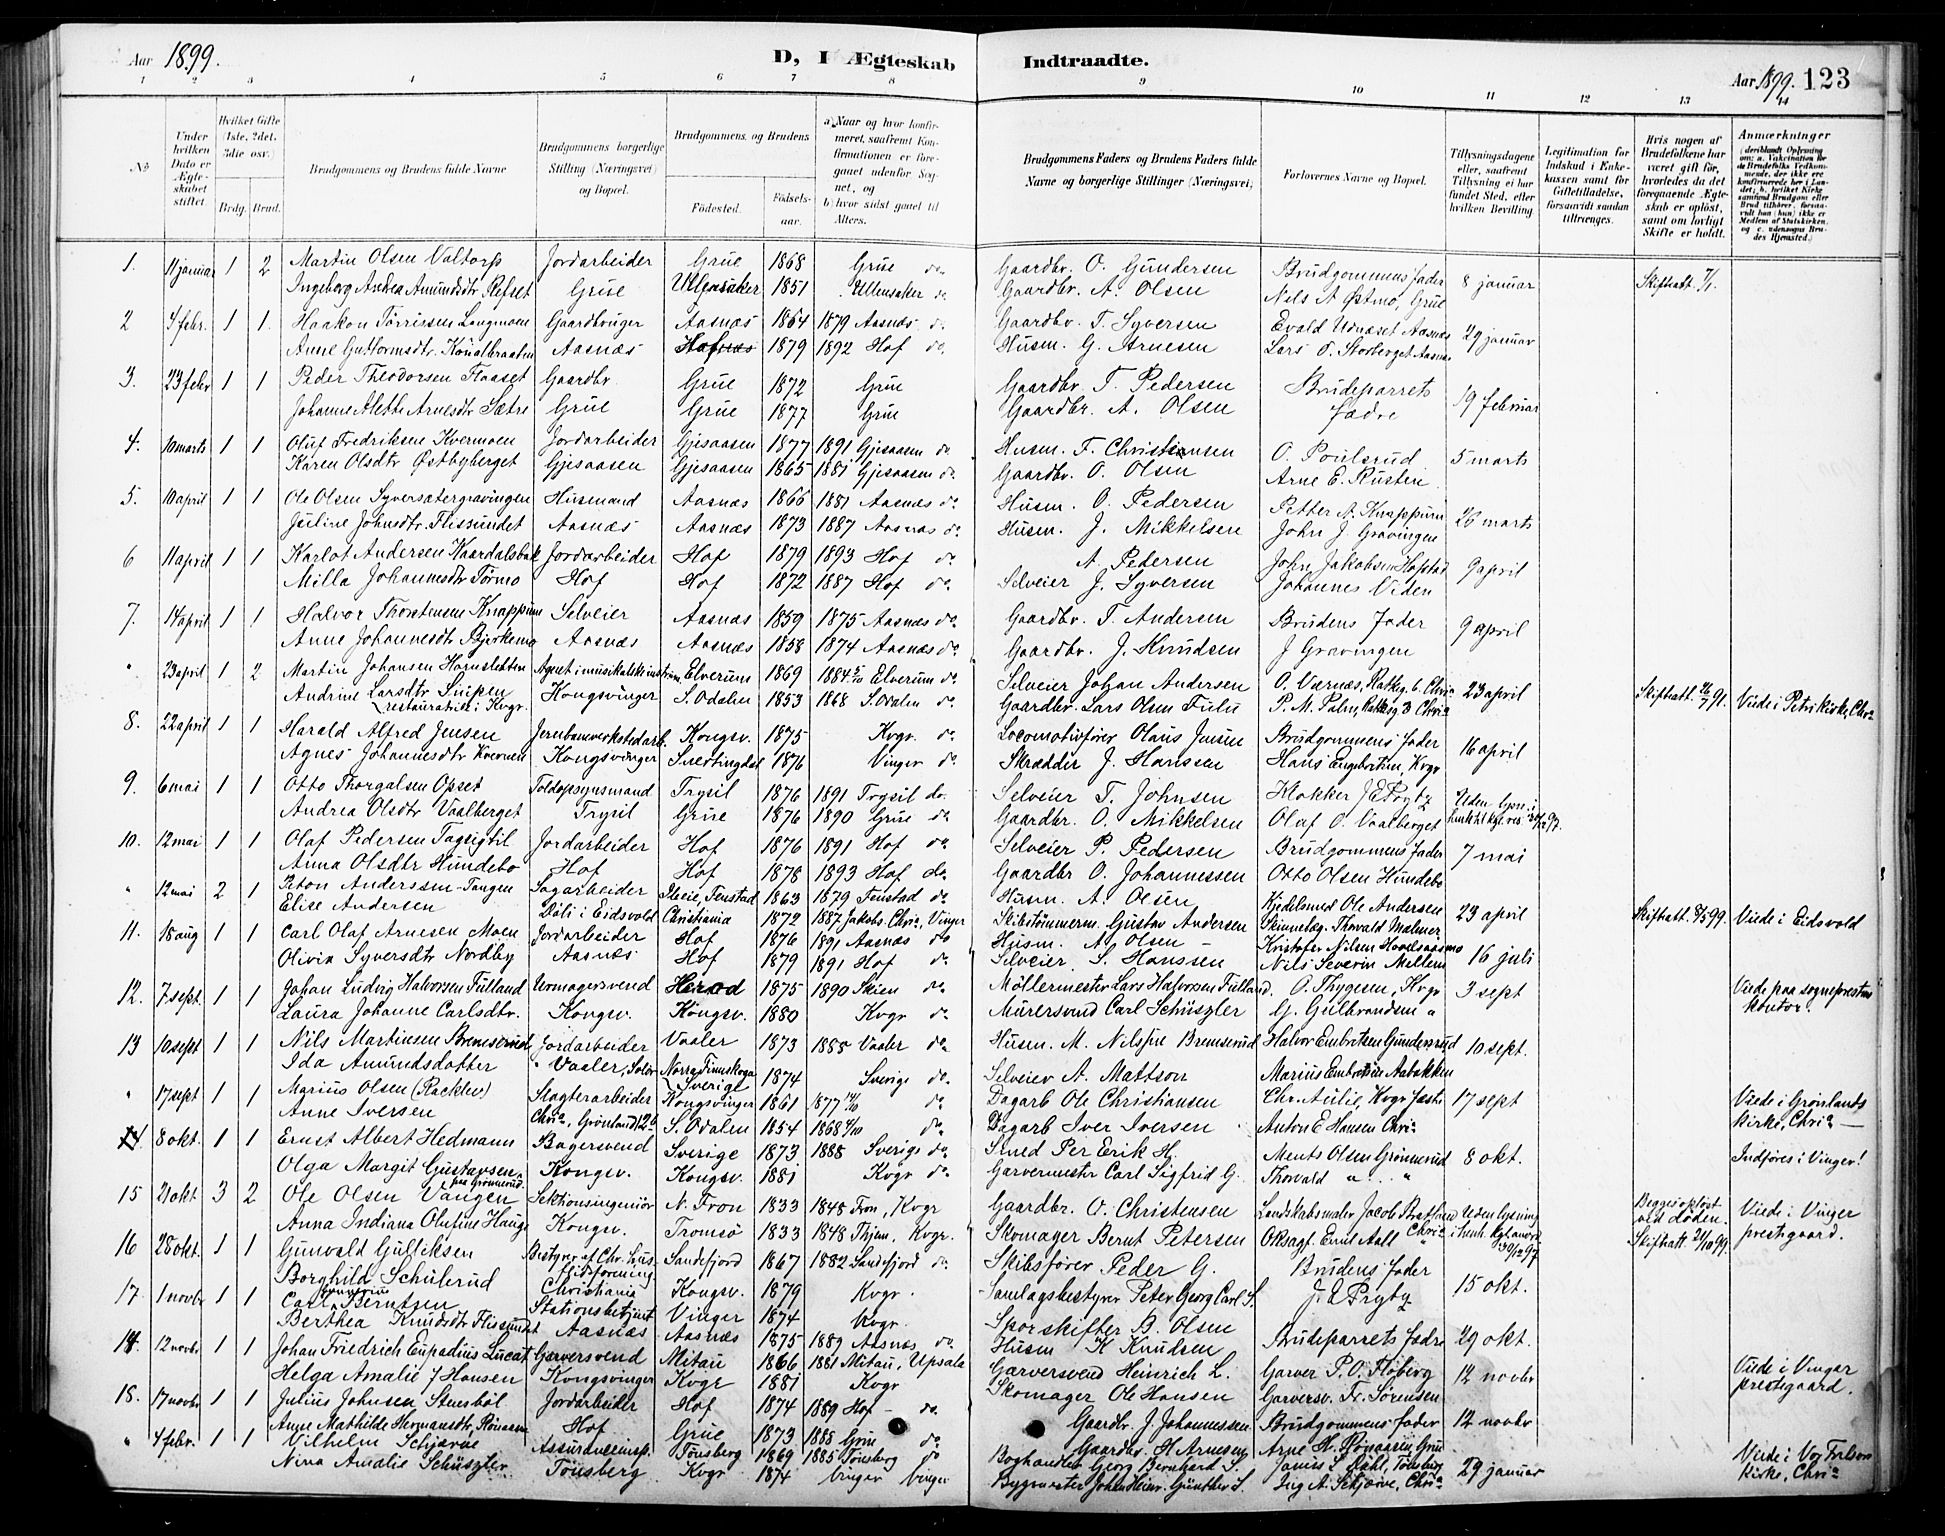 Aar 1899.
D, I Ægteskab Indtraadte.
Aar 1899. 123
1 2 3 4 5 6 7 8 9 10 11 12 13 14
No
Under hvilken Dato er Ægteskabet stiftet.
Hvilket Gifte (1ste, 2det, 3die osv.)
Brdg. Brud.
Brudgommens og Brudens fulde Navne
Brudgommens borgerlige Stilling (Næringsvei) og Bopæl.
Brudgommens og Brudens
Fødested. Fødselsaar.
a) Naar og hvor konfirmeret, saafremt Konfirmationen er foregaaet udenfor Sognet, og
b) hvor sidst gaaet til Alters.
Brudgommens Faders og Brudens Faders fulde Navne og borgerlige Stillinger (Næringsvei)
Forlovernes Navne og Bopæl.
Tillysningsdagene eller, saafremt Tillysning ei har fundet Sted, efter hvilken Bevilling
Legitimation for Indskud i Enkekassen samt for Giftetilladelse, forsaavidt saadan tiltrænges.
Hvis nogen af Brudefolkene har været gift før, hvorledes da det foregaaende Ægteskab er opløst, samt om lovligt Skifte er holdt.
Anmærkninger
1. 11 januar 1 2 Martin Olsen Valtorp Jordarbeider Grue 1868 Grue do. Gaardbr. O. Gundersen Brudgommens Fader 8 januar Skifteatt. 7/1.
Ingeborg Andrea Amundsdtr. Refset Grue Ullensaker 1851 Ullensaker do. Gaardbr. A. Olsen Nels A Østmo, Grue
2 4 febr. 1 1. Haakon Tørrissen Langmoen Gaardbruger Aasnæs 1864 1879 Aasnæs do. Gaardbr. T. Syversen Evald Udnæset Aasnæs 29 januar
Anne Guttormsdtr. Aasnæs Hof 1879 1892 Hof do. Husm. G. Arnesen Lars O. Storberget Aasnæs
3. 23 febr 1 1 Peder Theodorsen Flaaset Gaardbr. Grue 1872 Grue Gaardbr. T. Pedersen Brudeparrets 19 februar
Johanne Alette Arnesdtr Sætre Grue Grue 1877 Grue Gaardbr. A. Olsen Fædre
4. 10 marts 1 1 Oluf Fredriksen Kvermoen Jordarbeider Gjesaasen 1877 1891 Gjesaasen do Husm. F. Christiansen O. Poulsrud 5 marts
Karen Olsdtr Østbyberget Gjesaasen Gjesaasen 1865 1881 Gjesaasen do. Gaardbr. O. Olsen Arne E. Rusten
5. 10 april 1 1 Ole Olsen Syversætergravingen Husmand Aasnæs 1866 1881 Aasnæs do. Husm. O. Pedersen Petter A. Knappum 26 marts
Juline Johnsdtr. Flissundet Aasnæs Aasnæs 1873 1887 Aasnæs do. Husm. J. Mikkelsen John J. Gravingen
6 11 april 1 1 Karlot Andersen Jordarbeider Hof 1879 1893 Hof do A Pedersen John Jakobsen Hofstad 9 april
Milla Johannesdtr Tørmo Hof Hof 1872 1887 Hof do. Selveier J. Syversen Johannes Viden
7. 14 april 1 1 Halvor Thorstensen Knappum Selveier Aasnæs 1859 1875 Aasnæs do. Gaardbr. T. Andersen Brudens Fader 9 april
Anne Johannesdtr Bjerkemo Aasnæs Aasnæs 1858 1874 Aasnæs do. Gaardbr. J. Knudsen J Gravingen
" 23 april 1 2 Martin Johansen Hagnsletten Agent i musikalske instrum. Elverum 1869 1884 5/10 Elverum do. Selveier Johan Andersen O. Værnæs, 23 april Skifteatt. 91. Viede i Petri kirke, Chr.a
Andrine Larsdtr Snipen restauratrice i Kvgr. Kongsvinger S. Odalen 1853 1868 S. Odalen do Gaardbr. Lars Olsen Fulu P. M. Palm, 3 Chr.a
8. 22 april 1 1 Harald Alfred Jensen Jernbaneverkstedarb. Kongsv. 1875 Kvgr. do. Locomotivfører Olaus Jensen Brudgommens Fader 16 april
Agnes Johannesdtr Kvernen Kongsvinger Snertingdal 1876 Vinger do Skrædder J. Hanssen Hans Engebretsen, Kvgr
9. 6 mai 1 1 Otto Thorgalsen Opset Toldopsynsmand Trysil 1876 1891 Trysil do. Selveier T. Johnsen Klokker J E Prytz
Andrea Olsdtr Vaalberget Trysil Grue 1876 1890 Grue do Gaardbr. O. Mikkelsen Olaf O. Vaalberget
10. 12 mai 1 1 Olaf Pedersen Tagsigtil Jordarbeider Hof 1876 1891 Hof do. Selveier P. Pedersen Brudgommens Fader 7 mai
Anna Olsdtr Hundebo Hof Hof 1878 1893 Hof do. Gaardbr O. Johannessen Otto Olsen Hundebo
" 12 mai 2 1 Anderssen-Tangen Sagarbeider Fenstad 1863 1879 Fenstad do Husm. A. Olsen Kjedelsmed Ole Andersen 23 april Skifteatt. 99. Viede i Eidsvold
Elise Andersen Døli i Eidsvold Christiania 1872 1887 Jakobs. Chr.a, Vinger Skibstømmerm. Gustav Andersen Thorvald Malmer
11. 18 aug 1 1 Carl Olaf Arnesen Moen Jordarbeider Hof 1876 1891 Aasnæs do Husm. A. Olsen Kristofer Nilsen 16 juli
Olivia Syversdtr Nordby Aasnæs Hof 1879 1891 Hof do. Selveier S. Hanssen Nils Severin
12. 7 sept 1 1 Johan Ludvig Halvorsen Fulland Urmagersvend 1875 1890 Skien do. Møllermester Lars Halvorsen Fulland. O. Thygesen, Kvgr 3 sept Viede paa sogneprestens
Laura Johanne Carlsdtr. Kongsv. Kongsv. 1880 Kvgr do Murersvend Carl Schüszler G. Gulbrandsen " kontor.
13 10 sept 1 1 Nils Martinsen Bremserud Jordarbeider Vaaler 1873 1885 Vaaler do. Husm. M. Nilsen Bremserud Halvor Embretsen Gundersrud 10 sept.
Ida Amundsdatter Vaaler, Solør Norra Finnskoga Sverige 1874 Sverige do. Selveier A. Mattson Marius Embretsen Aabakken
" 17 sept 1 1 Marius Olsen (Rackkev) Slagterarbeider Kongsvinger 1861 1877 14/10 do Dagarb Ole Christiansen Chr. Aulie, Kvgr 17 sept Viede i Grønlands
Anne Iversen Chr.a, Grønland 12 S. Odalen 1854 1868 4/10 do Dagarb Iver Iversen Anton E Hansen Chr.a kirke, Chr.a
14. 8 okt. 1 1 Ernst Albert Hedmann Bagersvend Sverige 1873 1888 Sverige do Smed Per Erik H. Ments Olsen Grønnerud 8 okt. Indføres i Vinger!
Olga Margit Gustavsen paa Grønnerud Kongsv. Kongsv. 1881 Kvgr do Garvermester Carl Sigfrid G. Thorvald " "
15 21 okt 3 2 Ole Olsen Vangen Sektionsingeniør N. Fron 1833 1848 Fron, Kvgr Gaardbr. O. Christensen Landskabsmaler Jacob Uden lysning Begges opløst ved døden. Viede i Vinger
Anna Indiana Olufine Hauge Kongsv. Tromsø 1833 1848 Kvgr. Skomager Bernt Petersen O.Rsagf. Emil Aall Chr.a Skifteatt. 21/10 99. prestegaard.
16 28 okt. 1 1 Gunvald Gulliksen Bestyrer af Chr. Husflidsforening Sandefjord 1867 1882 Sandefjord do. Skibsfører Peder G. Brudens Fader 15 okt.
Borghild Schulerud Christiania Kongsv. 1879 Kvgr. Samlagsbestyrer Peter Georg Carl S. J. E Prytz
17. 1 novbr 1 1 Carl Berntzen Stationsbetjent Vinger 1874 Kvgr. Sporskifter B. Olsen Brudeparrets Fædre 29 okt.
Berthea Knudsdtr Flissundet Aasnæs Aasnæs 1875 1889 Aasnæs do. Husm K Knudsen
14. 12 novbr 1 1 Johan Friedrich Lucat Garversvend Mitau 1866 1881 Mitau, Upsala Garversvend Heinrich L. Garver P. O. Floberg 12 novbr Viede i Vinger
Helga Amalie J Hansen Kongsvinger Kvgr 1881 Kvgr Skomager Ole Hansen Garversv. Fr. Sørensen prestegaard.
18. 17 novbr 1 1 Julius Johnsen Stensbøl Jordarbeider Hof 1874 1889 Hof do. Gaardbr. J Johannessen Brudgommens Fader 12 novbr
Anne Mathilde Hermansdtr, Rønaasen Hof Grue 1873 1888 Grue do Gaardbr. H Arnesen Arne H. Rønaasen Grue
" 4 febr. 1 1 Vilhelm Schjærve Tønsberg 1869 1885 Tønsberg do Boghandler Georg Bernhard S. Tønsberg 29 januar Viede i Vor Frelsers
Nina Amalie Schüszler Tønsberg Kvgr 1874 Vinger Vinger Bygmester Johan Heinr. Günther S. Ing A. Schjærve, Chr.a kirke, Chr.a